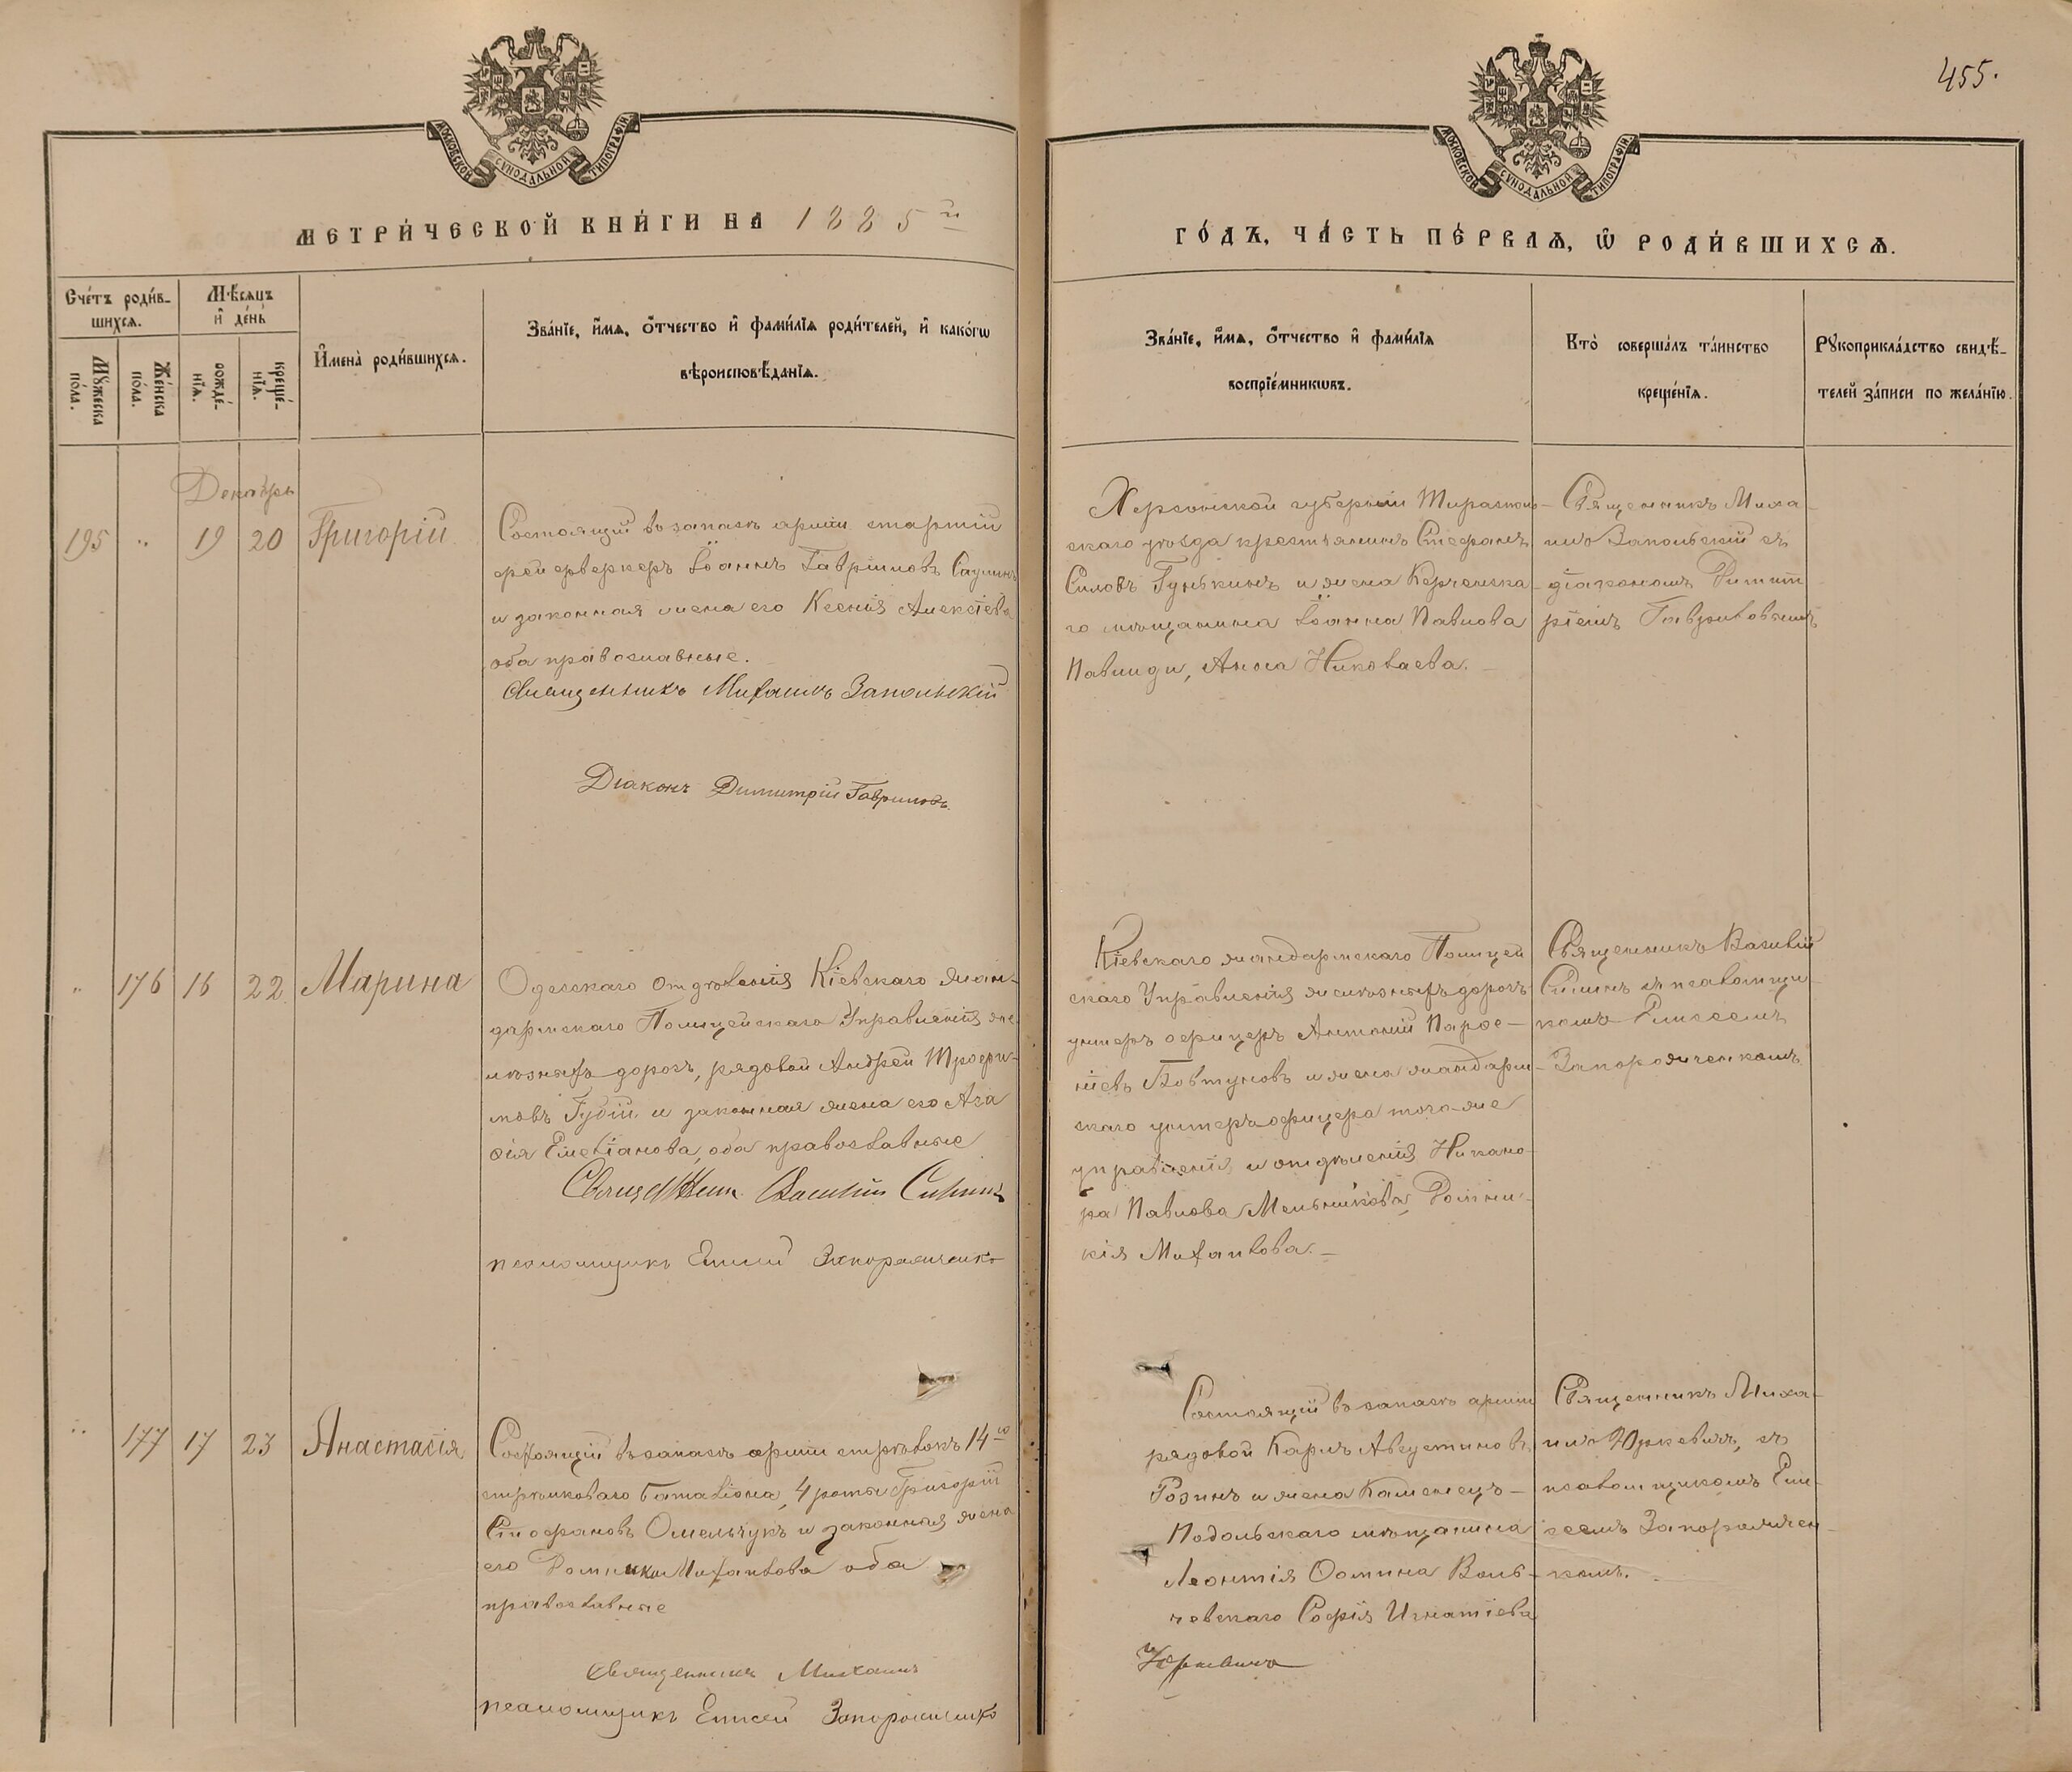 455.
МОСКОВСКОЙ СѴНОДАЛЬНОЙ ТИПОГРАФІИ
МОСКОВСКОЙ СѴНОДАЛЬНОЙ ТИПОГРАФІИ
МЕТРИ́ЧЕСКОЙ КНИ́ГИ НА 1885й
ГО́ДЪ, ЧА́СТЬ ПЕ́РВАѦ, Ѿ РОДИ́ВШИХСѦ.
Сче́тъ роди́в-
шихсѧ.
Мѣ́сѧцъ
и҆ де́нь
Мꙋ́жеска
по́ла.
Же́нска
по́ла.
рожде́-
нїѧ.
креще́-
нїѧ.
И҆мена̀ роди́вшихсѧ.
Зва́нїе, и҆́мѧ, ѻ҆́тчество и҆ фами́лїѧ роди́телей, и҆ како́гѡ
вѣроисповѣ́данїѧ.
Зва́нїе, и҆́мѧ, ѻ҆́тчество и҆ фами́лїѧ
воспрїе́мникѡвъ.
Кто̀ соверша́лъ та́инство
креще́нїѧ.
Рꙋкоприкла́дство свидѣ́-
телей за́писи по жела́нїю.
Декабрь
195 " 19 20 Григорій
Состоящій въ запасѣ арміи старшій
фейерверкеръ Іоаннъ Гавріиловъ
и законная жена его Ксенія Алексіева
оба православные.
Священникъ Михаилъ Запольскій
Діаконъ Димитрій Гавриловъ
Херсонской губерніи Тирасполь-
скаго уѣзда крестьянинъ Стефанъ
Силовъ Гунькинъ и жена Керченска-
го мѣщанина Іоанна Павлова
Павлиди, Анна Николаева.
Священникъ Миха-
илъ Запольскій съ
діакономъ Димит-
ріемъ Гавриловымъ
" 176 16 22 Марина
Одесскаго отдѣленія Кіевскаго жан-
дармскаго Полицейскаго Управленія же-
лѣзныхъ дорогъ, рядовой Андрей Трофи-
мовъ Губій и законная жена его Ага-
ѳія Емеліанова, оба православные
Священникъ Василій Силинъ
псаломщикъ Елисей Запорожченко
Кіевскаго жандармскаго Полицей-
скаго Управленія желѣзныхъ дорогъ
унтеръ офицеръ Антоній Парѳе-
ніевъ Бовтуновъ и жена жандарм-
скаго унтеръ офицера того-же
управленія и отдѣленія Никано-
ра Павлова Мельникова Домни-
кія Михаилова.
Священникъ Василій
Силинъ съ псаломщи-
комъ Елисеемъ
Запорожченкомъ
" 177 17 23 Анастасія
Состоящій въ запасѣ арміи стрѣлокъ 14го
стрѣлковаго баталіона, 4 роты Григорій
Стефановъ Омельчукъ и законная жена
его Домникія Михаилова оба
православные
Священникъ Михаилъ
псаломщикъ Елисей Запорожченко
Состоящій въ запасѣ арміи
рядовой Карлъ Августиновъ
Розинъ и жена Каменецъ-
Подольскаго мѣщанина
Леонтія Ѳомина Воль-
чевскаго Софія Игнатіева
Юркевичъ
Священникъ Миха-
илъ Юркевичъ, съ
псаломщикомъ Ели-
сеемъ Запорожчен-
комъ.